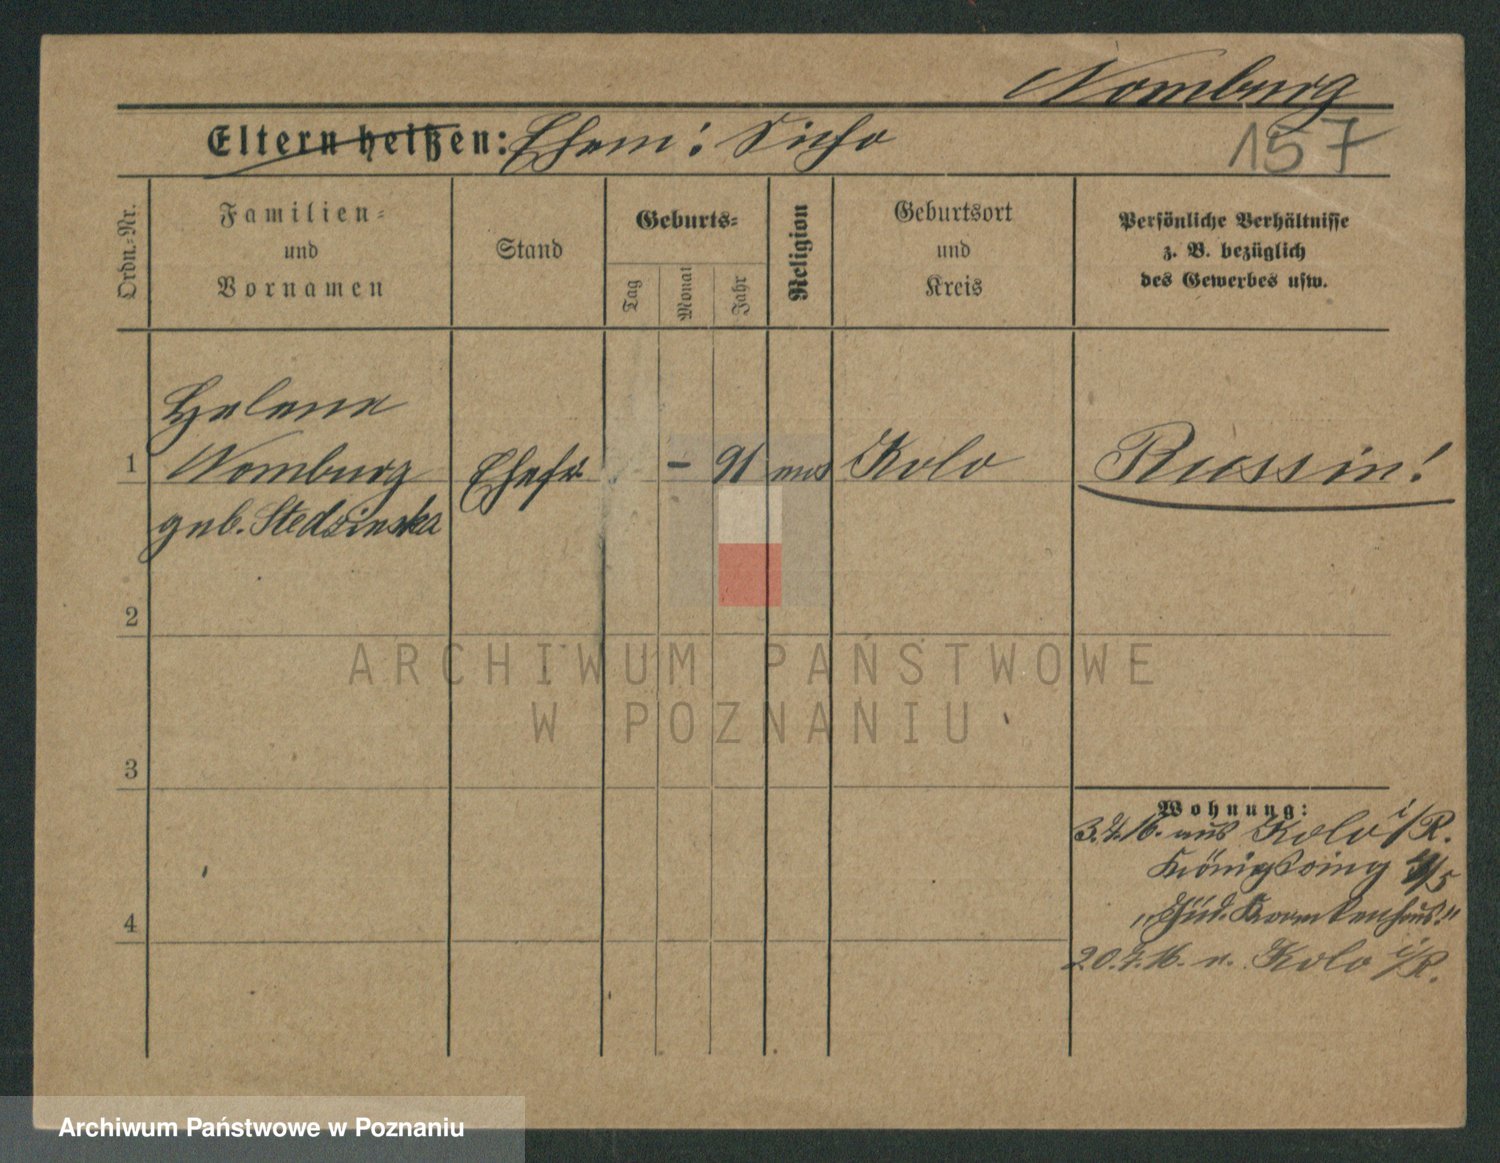 Nomburg
Eltern heißen: Ehem: Sicho
157
Ordn.-Nr.
Familien-
und
Vornamen
Stand
Geburts-
Tag
Monat
Jahr
Religion
Geburtsort
und
Kreis
Persönliche Verhältnisse
z. B. bezüglich
des Gewerbes usw.
Helene
1 Nomburg Ehefr - 91 mos Kolo Russin!
geb. Stedzinska
2
3
4
ARCHIWUM PAŃSTWOWE
W POZNANIU
Wohnung:
3.7.16. aus Kolo i/R.
Königsring 5
"Jüd. Krankenhaus."
20.7.16. n. Kolo i/R.
Archiwum Państwowe w Poznaniu